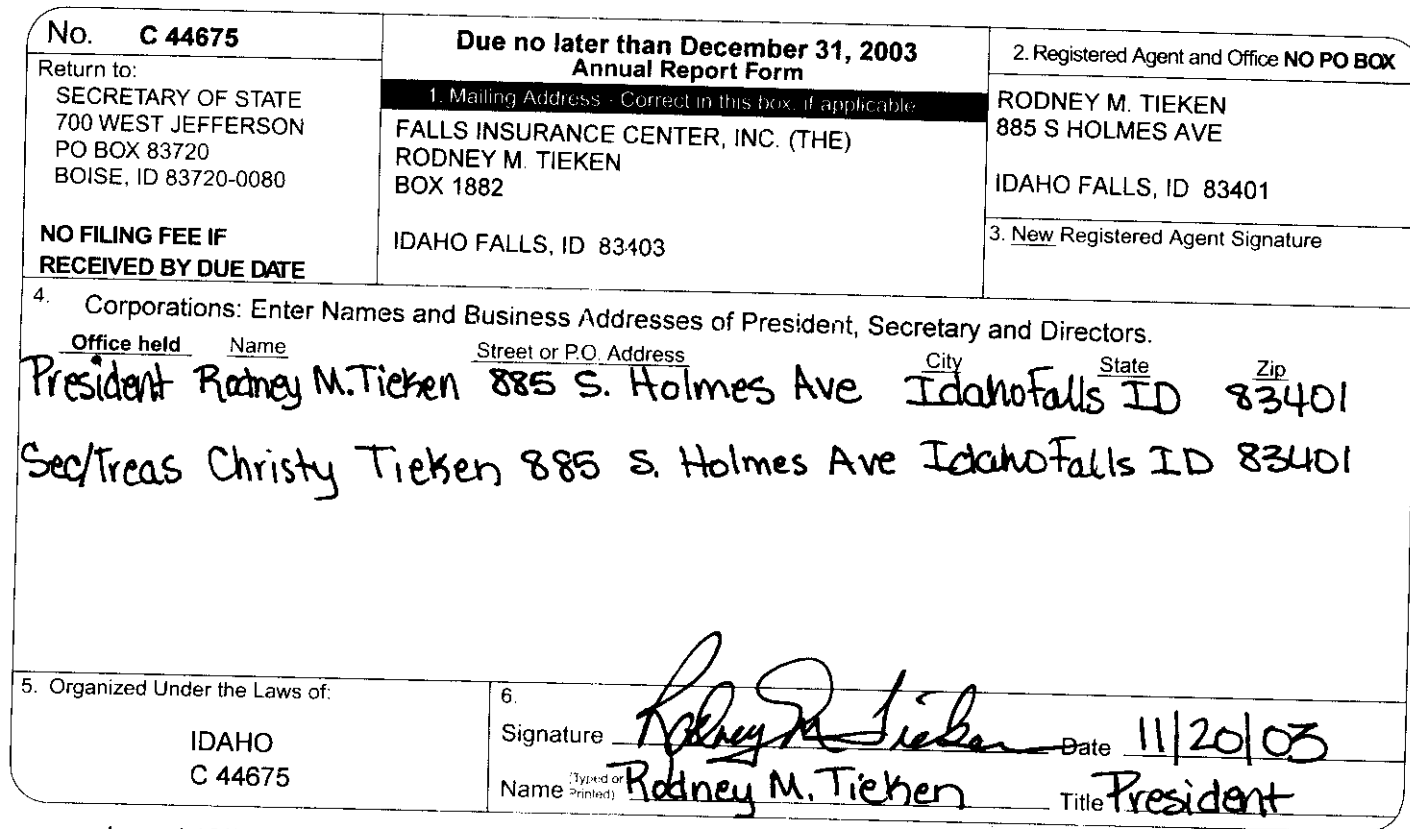 No. C 44675
Return to:
SECRETARY OF STATE
700 WEST JEFFERSON
PO BOX 83720
BOISE, ID 83720-0080
NO FILING FEE IF
RECEIVED BY DUE DATE
Due no later than December 31, 2003
Annual Report Form
1. Mailing Address - Correct in this box, if applicable
FALLS INSURANCE CENTER, INC. (THE)
RODNEY M. TIEKEN
BOX 1882
IDAHO FALLS, ID 83403
2. Registered Agent and Office NO PO BOX
RODNEY M. TIEKEN
885 S HOLMES AVE
IDAHO FALLS, ID 83401
3. New Registered Agent Signature
4. Corporations: Enter Names and Business Addresses of President, Secretary and Directors.
Office held Name Street or P.O. Address City State Zip
President Rodney M. Tieken 885 S. Holmes Ave Idaho Falls ID 83401
Sec/Treas Christy Tieken 885 S. Holmes Ave Idaho Falls ID 83401
5. Organized Under the Laws of:
IDAHO
C 44675
6.
Signature Rodney M Tieken Date 11/20/03
Name (Typed or Printed) Rodney M. Tieken Title President